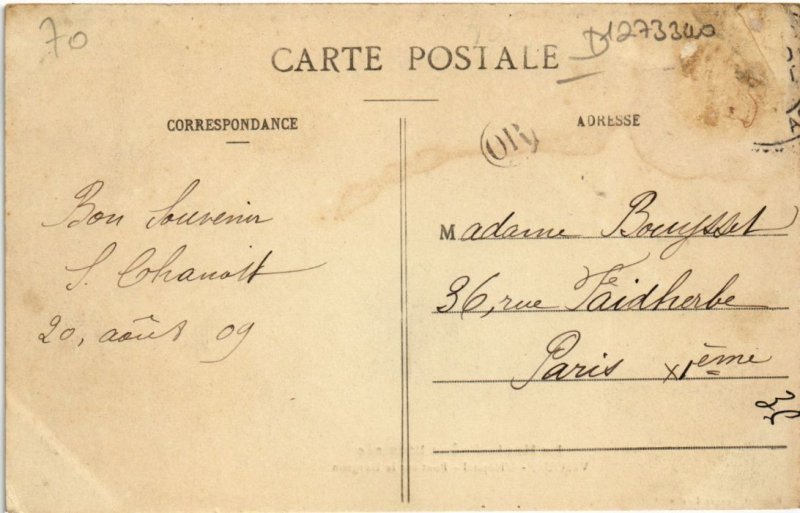 70
D1273340
CARTE POSTALE
CORRESPONDANCE
ADRESSE
OR
Bon Souvenir
20, août 09
Madame Bouysset
36, rue Faidherbe
Paris XIème